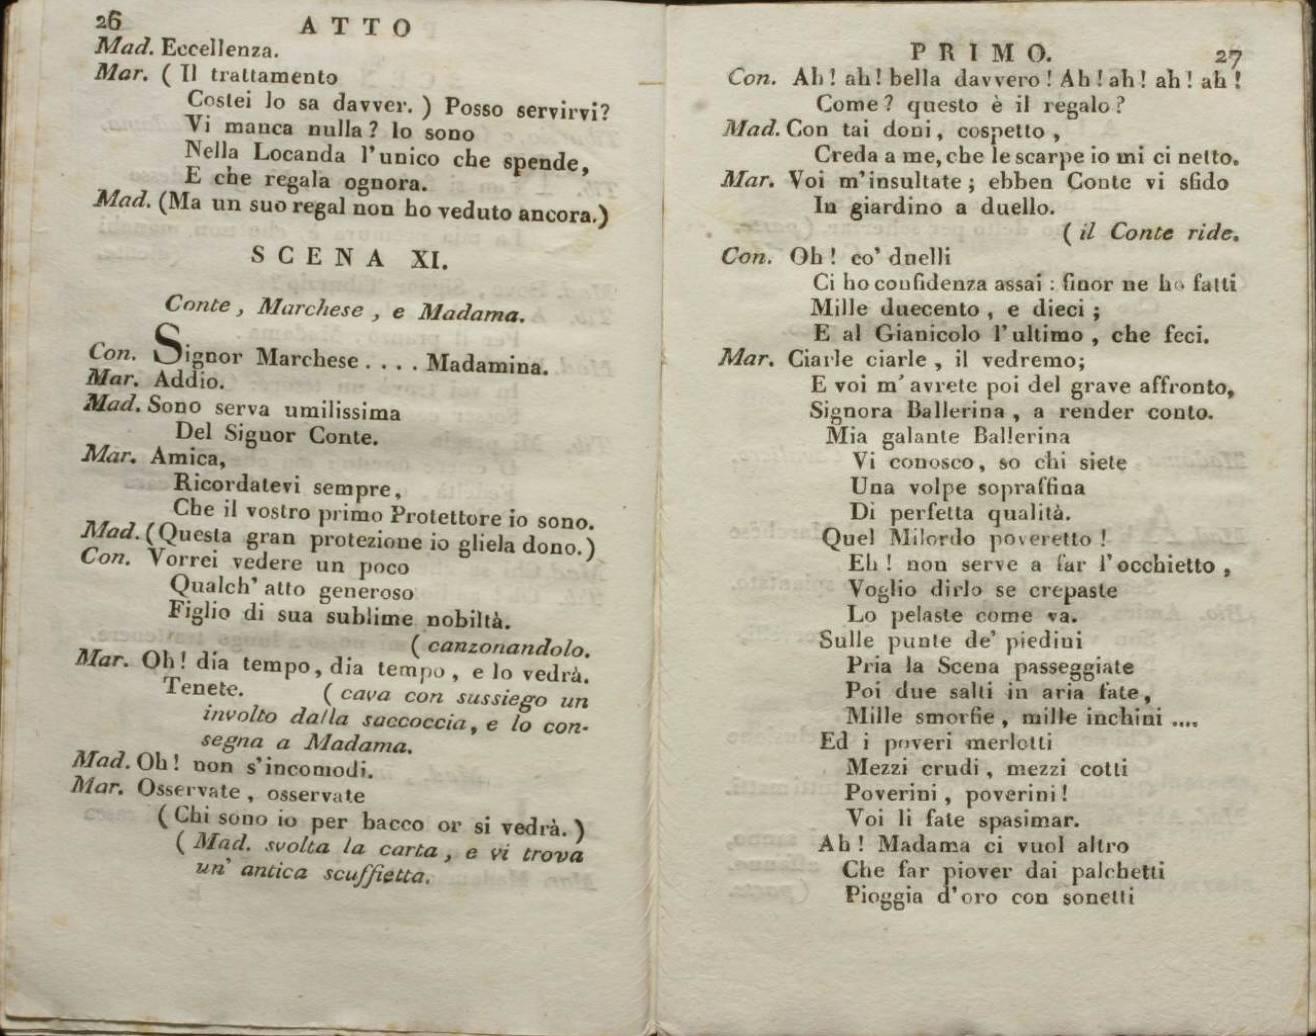 26 ATTO
Mad. Eccellenza.
Mar. ( Il trattamento
Costei lo sa davver. ) Posso servirvi?
Vi manca nulla? Io sono
Nella Locanda l'unico che spende,
E che regala ognora.
Mad. (Ma un suo regal non ho veduto ancora.)
SCENA XI.
Conte, Marchese, e Madama.
Con. Signor Marchese .... Madamina.
Mar. Addio.
Mad. Sono serva umilissima
Del Signor Conte.
Mar. Amica,
Ricordatevi sempre,
Che il vostro primo Protettore io sono.
Mad. (Questa gran protezione io gliela dono.)
Con. Vorrei vedere un poco
Qualch' atto generoso
Figlio di sua sublime nobiltà.
( canzonandolo.
Mar. Oh! dia tempo, dia tempo, e lo vedrà.
Tenete. ( cava con sussiego un
involto dalla saccoccia, e lo con-
segna a Madama.
Mad. Oh! non s'incomodi.
Mar. Osservate, osservate
(Chi sono io per bacco or si vedrà.)
( Mad. svolta la carta, e vi trova
un' antica scuffietta.
PRIMO. 27
Con. Ah! ah! bella davvero! Ah! ah! ah! ah!
Come? questo è il regalo?
Mad. Con tai doni, cospetto,
Creda a me, che le scarpe io mi ci netto.
Mar. Voi m'insultate; ebben Conte vi sfido
In giardino a duello.
( il Conte ride.
Con. Oh! co' duelli
Ci ho confidenza assai: finor ne ho fatti
Mille duecento, e dieci;
E al Gianicolo l'ultimo, che feci.
Mar. Ciarle ciarle, il vedremo;
E voi m'avrete poi del grave affronto,
Signora Ballerina, a render conto.
Mia galante Ballerina
Vi conosco, so chi siete
Una volpe sopraffina
Di perfetta qualità.
Quel Milordo poveretto!
Eh! non serve a far l'occhietto,
Voglio dirlo se crepaste
Lo pelaste come va.
Sulle punte de' piedini
Pria la Scena passeggiate
Poi due salti in aria fate,
Mille smorfie, mille inchini ....
Ed i poveri merlotti
Mezzi crudi, mezzi cotti
Poverini, poverini!
Voi li fate spasimar.
Ah! Madama ci vuol altro
Che far piover dai palchetti
Pioggia d'oro con sonetti